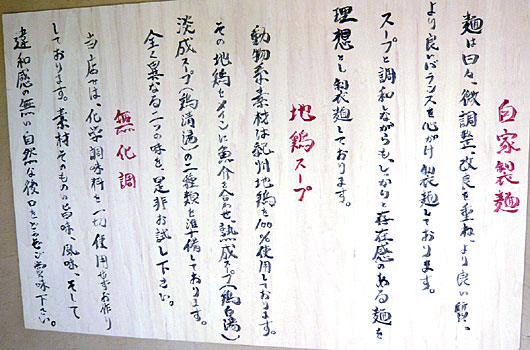 自家製麺
麺は日々、微調整、改良を重ね、より良い
より良いバランスを心がけ製麺しております。
スープと調和しながらも、しっかりと存在感のある麺を
理想とし製麺しております。
地鶏スープ
動物系素材は紀州地鶏を100%使用しております。
その地鶏をメインに魚介を合わせ熟成スープ(鶏白湯)
淡成スープ(鶏清湯)の二種類を準備しております。
全く異なる二つの味を、是非お試し下さい。
無化調
当店では、化学調味料を一切使用せずお作り
しております。素材そのものの旨味、風味、そして
違和感の無い自然な後口をどうぞご賞味下さい。